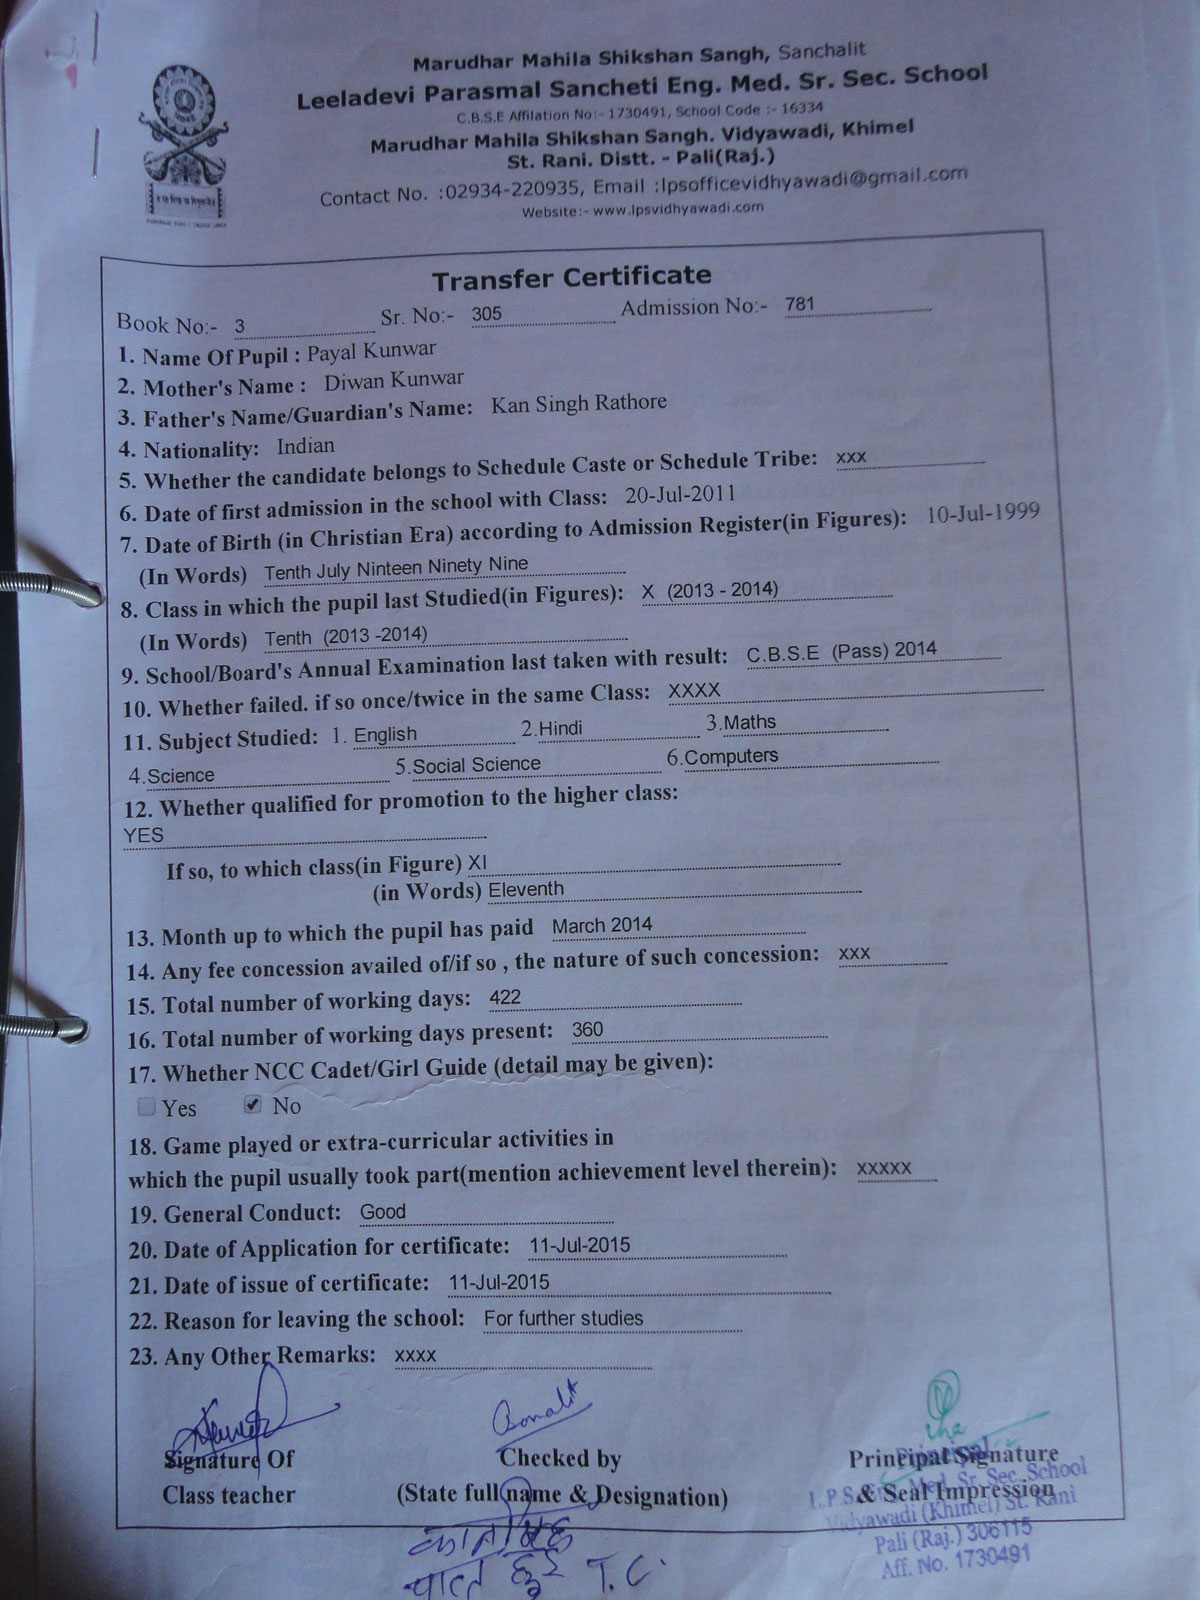 Marudhar Mahila Shikshan Sangh, Sanchalit
Leeladevi Parasmal Sancheti Eng. Med. Sr. Sec. School
C.B.S.E Affilation No:- 1730491, School Code :- 16334
Marudhar Mahila Shikshan Sangh. Vidyawadi, Khimel
St. Rani. Distt. - Pali(Raj.)
Contact No. :02934-220935, Email :lpsofficevidhyawadi@gmail.com
Website:- www.lpsvidhyawadi.com
Transfer Certificate
Book No:- 3 Sr. No:- 305 Admission No:- 781
1. Name Of Pupil : Payal Kunwar
2. Mother's Name : Diwan Kunwar
3. Father's Name/Guardian's Name: Kan Singh Rathore
4. Nationality: Indian
5. Whether the candidate belongs to Schedule Caste or Schedule Tribe: xxx
6. Date of first admission in the school with Class: 20-Jul-2011
7. Date of Birth (in Christian Era) according to Admission Register(in Figures): 10-Jul-1999
(In Words) Tenth July Ninteen Ninety Nine
8. Class in which the pupil last Studied(in Figures): X (2013 - 2014)
(In Words) Tenth (2013 -2014)
9. School/Board's Annual Examination last taken with result: C.B.S.E (Pass) 2014
10. Whether failed. if so once/twice in the same Class: XXXX
11. Subject Studied: 1. English 2.Hindi 3.Maths
4.Science 5.Social Science 6.Computers
12. Whether qualified for promotion to the higher class:
YES
If so, to which class(in Figure) XI
(in Words) Eleventh
13. Month up to which the pupil has paid March 2014
14. Any fee concession availed of/if so , the nature of such concession: xxx
15. Total number of working days: 422
16. Total number of working days present: 360
17. Whether NCC Cadet/Girl Guide (detail may be given):
Yes No
18. Game played or extra-curricular activities in
which the pupil usually took part(mention achievement level therein): xxxxx
19. General Conduct: Good
20. Date of Application for certificate: 11-Jul-2015
21. Date of issue of certificate: 11-Jul-2015
22. Reason for leaving the school: For further studies
23. Any Other Remarks: xxxx
Signature Of Checked by Principal Signature
Class teacher (State full name & Designation) & Seal Impression
Principal
L.P.S. Med. Sr. Sec. School
Vidyawadi (Khimel) St. Rani
Pali (Raj.) 306115
Aff. No. 1730491
T.C.